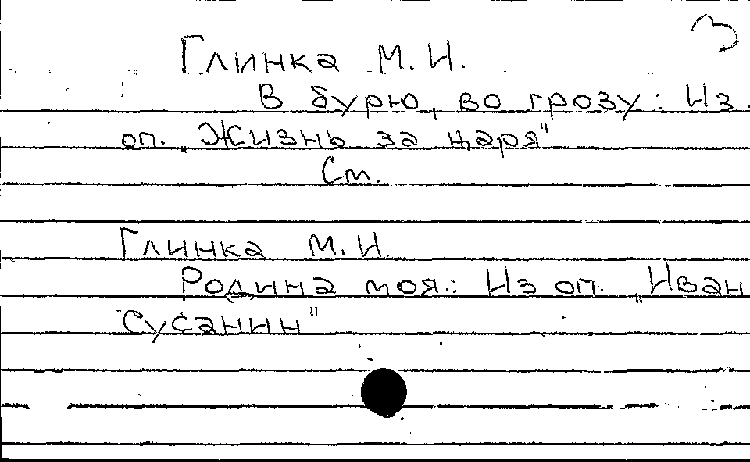 Глинка М.И.
В бурю, во грозу: Из
оп. „Жизнь за царя"
См.
Глинка М.И.
Родина моя.: Из оп. „Иван
Сусанин"